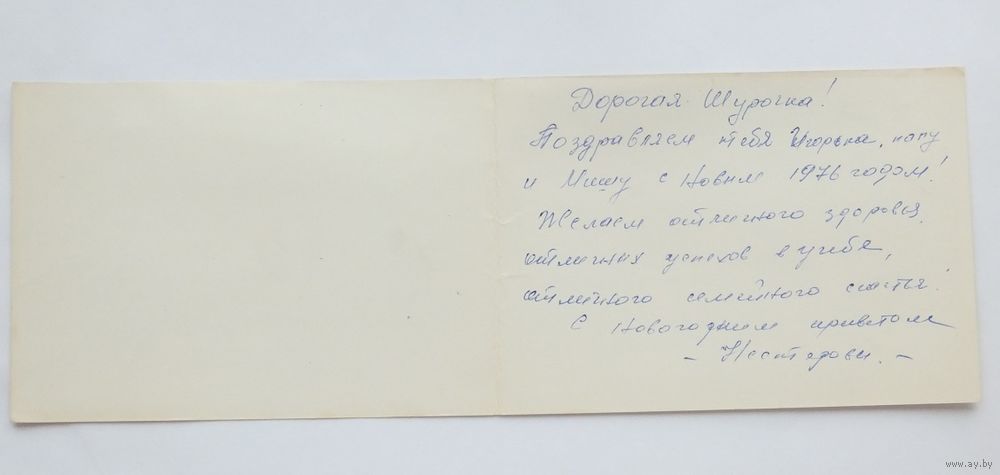 Дорогая Шурочка!
Поздравляем тебя Игорька, папу
и Мишу с Новым 1976 годом!
Желаем отличного здоровья,
отличных успехов в учебе,
отличного семейного счастья!
С новогодним приветом
- Нестеровы. -
www.ay.by